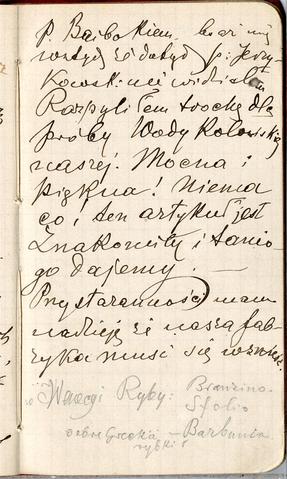 p. Baibakiem, bo aż mi
wstyd że dotąd p: Jerzy-
kowski nie widziałem
Rozpyliłem trochę dla
próby Wody Kolońskiej
naszej. Mocna i
piękna! Niema
co, ten artykuł jest
znakomity i tanio
go dajemy. —
Przy staranności mam
nadzieję że nasza fab-
ryka musi się wznieść.
w Wenecji Ryby: Branzino
Sfolio
dobre Grecka — Barbunia
rybki